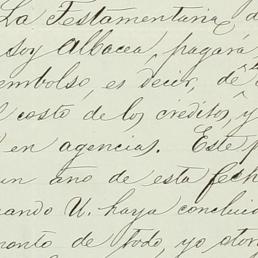 La Testamentaria, d
soy Albacea, pagará
embolso, es decir, de
l costo de los creditos, y
en agencias. Este p
un año de esta fech
uando U. haya concluid
pronto de todo, yo otor